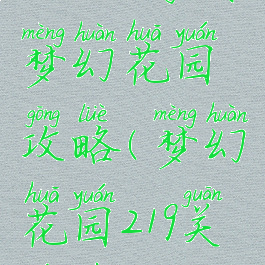 mèng huàn huā yuán
梦幻花园
gōng lüè mèng huàn
攻略(梦幻
huā yuán guān
花园219关